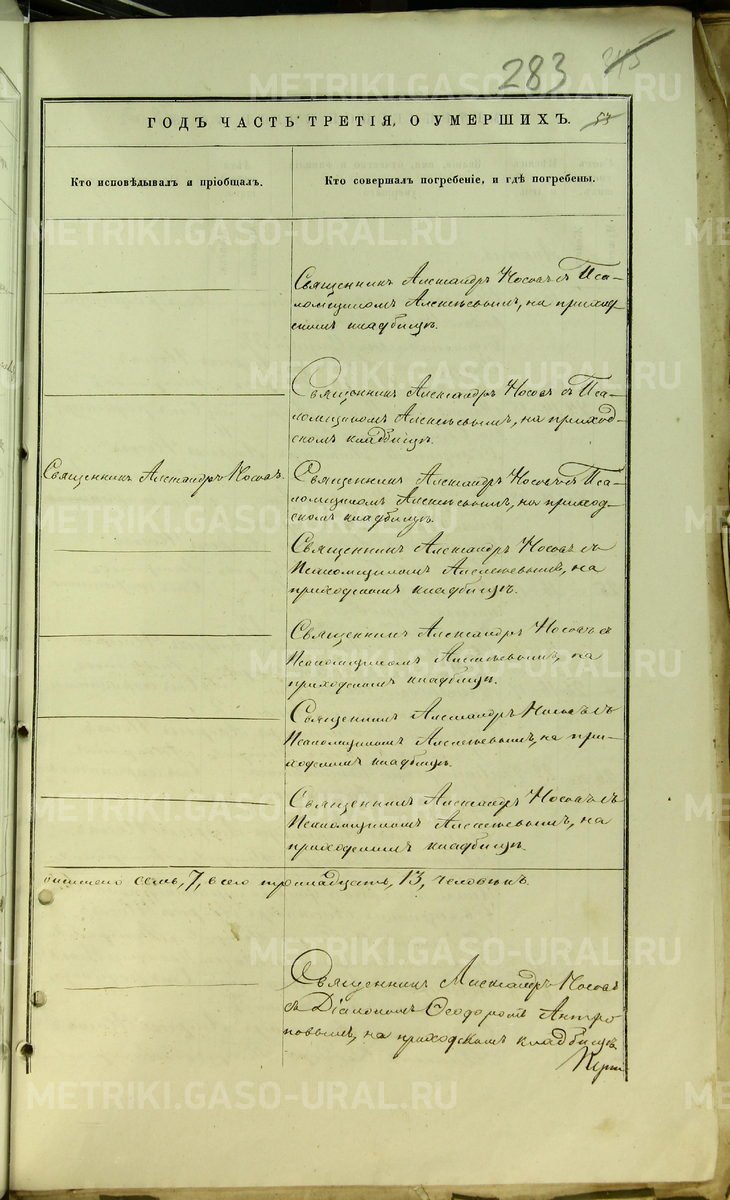 283 245
ГОДЪ ЧАСТЬ ТРЕТІЯ, О УМЕРШИХЪ.
Кто исповѣдывалъ и пріобщалъ.
Кто совершалъ погребеніе, и гдѣ погребены.
Священникъ Александръ Носовъ съ Пса-
ломщикомъ Алексѣевымъ, на приход-
скомъ кладбищѣ.
Священникъ Александръ Носовъ съ Пса-
ломщикомъ Алексѣевымъ, на приход-
скомъ кладбищѣ.
Священникъ Александръ Носовъ.
Священникъ Александръ Носовъ съ Пса-
ломщикомъ Алексѣевымъ, на приход-
скомъ кладбищѣ.
Священникъ Александръ Носовъ съ
Псаломщикомъ Алексѣевымъ, на
приходскомъ кладбищѣ.
Священникъ Александръ Носовъ съ
Псаломщикомъ Алексѣевымъ, на
приходскомъ кладбищѣ.
Священникъ Александръ Носовъ съ
Псаломщикомъ Алексѣевымъ, на при-
ходскомъ кладбищѣ.
Священникъ Александръ Носовъ съ
Псаломщикомъ Алексѣевымъ, на
приходскомъ кладбищѣ.
семь, 7, всего тринадцать, 13, человѣкъ.
Священникъ Александръ Носовъ
съ Діакономъ Ѳеодоромъ Антро
повымъ, на приходскомъ кладбищѣ.
METRIKI.GASO-URAL.RU